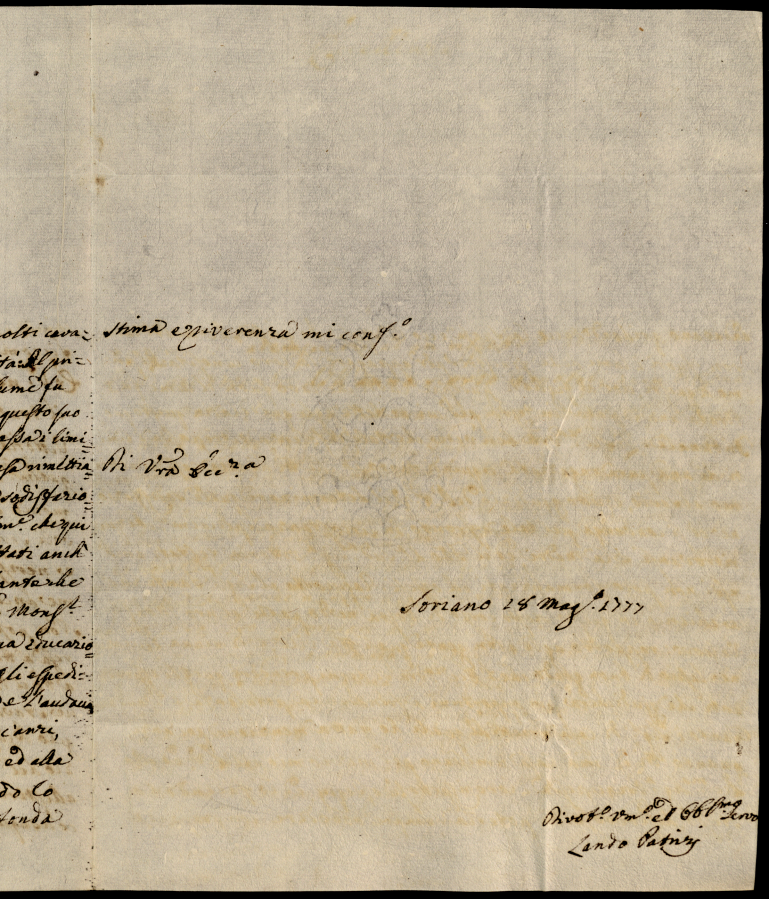 olti cava=
tà. Il pri=
lume fu
questo fac
assa i limi
esa rimettia
sodisfazio
mo. che qui
tati anch
ante che
Monsr.
na educazio=
gli espedi=
de l'audacia
canzi,
ed alla
do lo
fonda
stima e riverenza mi confo.
Di Vra Eccza
Soriano 18 Mago. 1777
Divotо. Umo. ed Obbmo Servo
Lando Patrizj